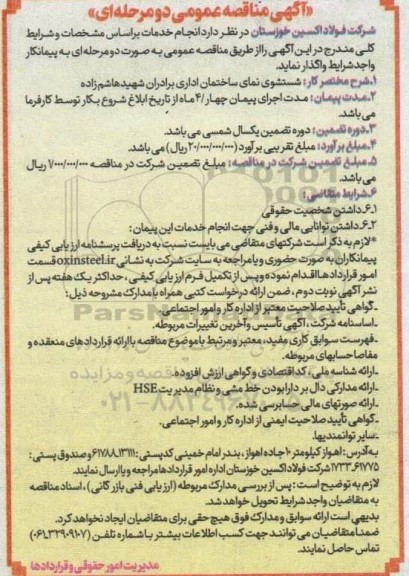 «آگهی مناقصه عمومی دو مرحله ای»
شرکت فولاد اکسین خوزستان در نظر دارد انجام خدمات براساس مشخصات و شرایط
کلی مندرج در این آگهی را از طریق مناقصه عمومی به صورت دو مرحله ای به پیمانکار
واجد شرایط واگذار نماید.
۱ـ شرح مختصر کار: شستشوی نمای ساختمان اداری برادران شهید هاشم زاده
۲ـ مدت پیمان: مدت اجرای پیمان چهار /۴ ماه از تاریخ ابلاغ شروع بکار توسط کارفرما
می باشد.
۳ـ دوره تضمین: دوره تضمین یکسال شمسی می باشد.
۴ـ مبلغ برآورد: مبلغ تقریبی برآورد (۲۰/۰۰۰/۰۰۰/۰۰۰ ریال) می باشد.
۵ـ مبلغ تضمین شرکت در مناقصه: مبلغ تضمین شرکت در مناقصه ۱/۰۰۰/۰۰۰/۰۰۰ ریال
می باشد.
۶ـ شرایط متقاضی:
۶ـ۱ـ داشتن شخصیت حقوقی
۶ـ۲ـ داشتن توانایی مالی و فنی جهت انجام خدمات این پیمان:
*لازم به ذکر است شرکتهای متقاضی می بایست نسبت به دریافت پرسشنامه ارزیابی کیفی
پیمانکاران به صورت حضوری و یا مراجعه به سایت شرکت به نشانی oxinsteel.ir قسمت
امور قراردادها اقدام نموده و پس از تکمیل فرم ارزیابی کیفی، حداکثر یک هفته پس از
نشر آگهی نوبت دوم، ضمن ارائه درخواست کتبی همراه با مدارک مشروحه ذیل:
ـ گواهی تأیید صلاحیت معتبر از اداره کار و امور اجتماعی.
ـ اساسنامه شرکت، آگهی تأسیس و آخرین تغییرات مربوطه.
ـ فهرست سوابق کاری مفید، معتبر و مرتبط با موضوع مناقصه با ارائه قراردادهای منعقده و
مفاصاحسابهای مربوطه.
ـ ارائه شناسه ملی، کد اقتصادی و گواهی ارزش افزوده.
ـ ارائه مدارکی دال بر دارا بودن خط مشی و نظام مدیریت HSE
ـ ارائه صورتهای مالی حسابرسی شده.
ـ گواهی تأیید صلاحیت ایمنی از اداره کار و امور اجتماعی.
ـ سایر توانمندیها.
به آدرس: اهواز کیلومتر ۱۰ جاده اهواز، بندر امام خمینی کد پستی: ۶۱۷۸۸ـ۱۳۱۱۱ و صندوق پستی:
۶۱۷۷۵ـ۱۷۳۳ شرکت فولاد اکسین خوزستان اداره امور قراردادها مراجعه و یا ارسال نمایند.
لازم به توضیح است: پس از بررسی مدارک مربوطه (ارزیابی فنی بازرگانی)، اسناد مناقصه
به متقاضیان واجد شرایط تحویل خواهد شد.
بدیهی است ارائه سوابق و مدارک فوق هیچ حقی برای متقاضیان ایجاد نخواهد کرد.
ضمناً متقاضیان می توانند جهت کسب اطلاعات بیشتر با شماره تلفن (۳۲۹۰۹۱۰۷ـ۰۶۱)
تماس حاصل نمایند.
مدیریت امور حقوقی و قراردادها